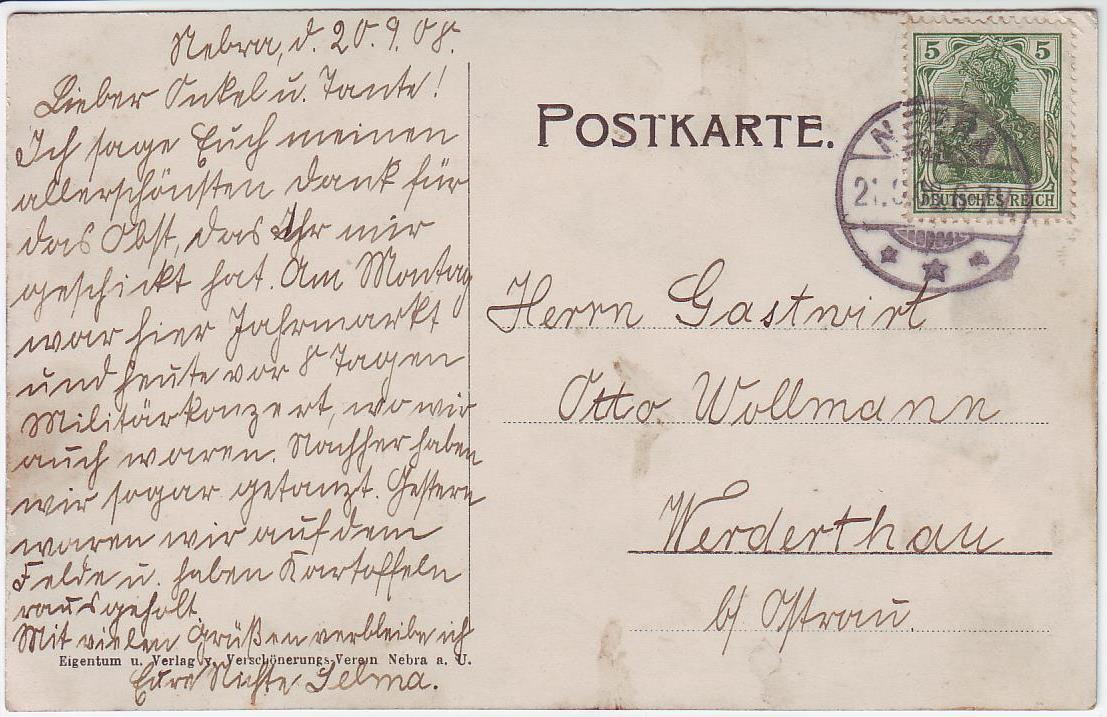 Nebra, d. 20.9.08.
Lieber Onkel u. Tante!
Ich sage Euch meinen
allerschönsten Dank für
das Obst, das Ihr mir
geschickt hat. Am Montag
war hier Jahrmarkt
und heute vor 8 Tagen
Militärkonzert, wo wir
auch waren. Nachher haben
wir sogar getanzt. Gestern
waren wir auf dem
Felde u. haben Kartoffeln
rausgeholt
Mit vielen Grüßen verbleibe ich
Eigentum u. Verlag v. Verschönerungs-Verein Nebra a. U.
Eure Nichte Selma.
POSTKARTE.
5 5
DEUTSCHES REICH
NEBRA
6-7V.
Herrn Gastwirt
Otto Wollmann
Werderthau
b/ Ostrau.